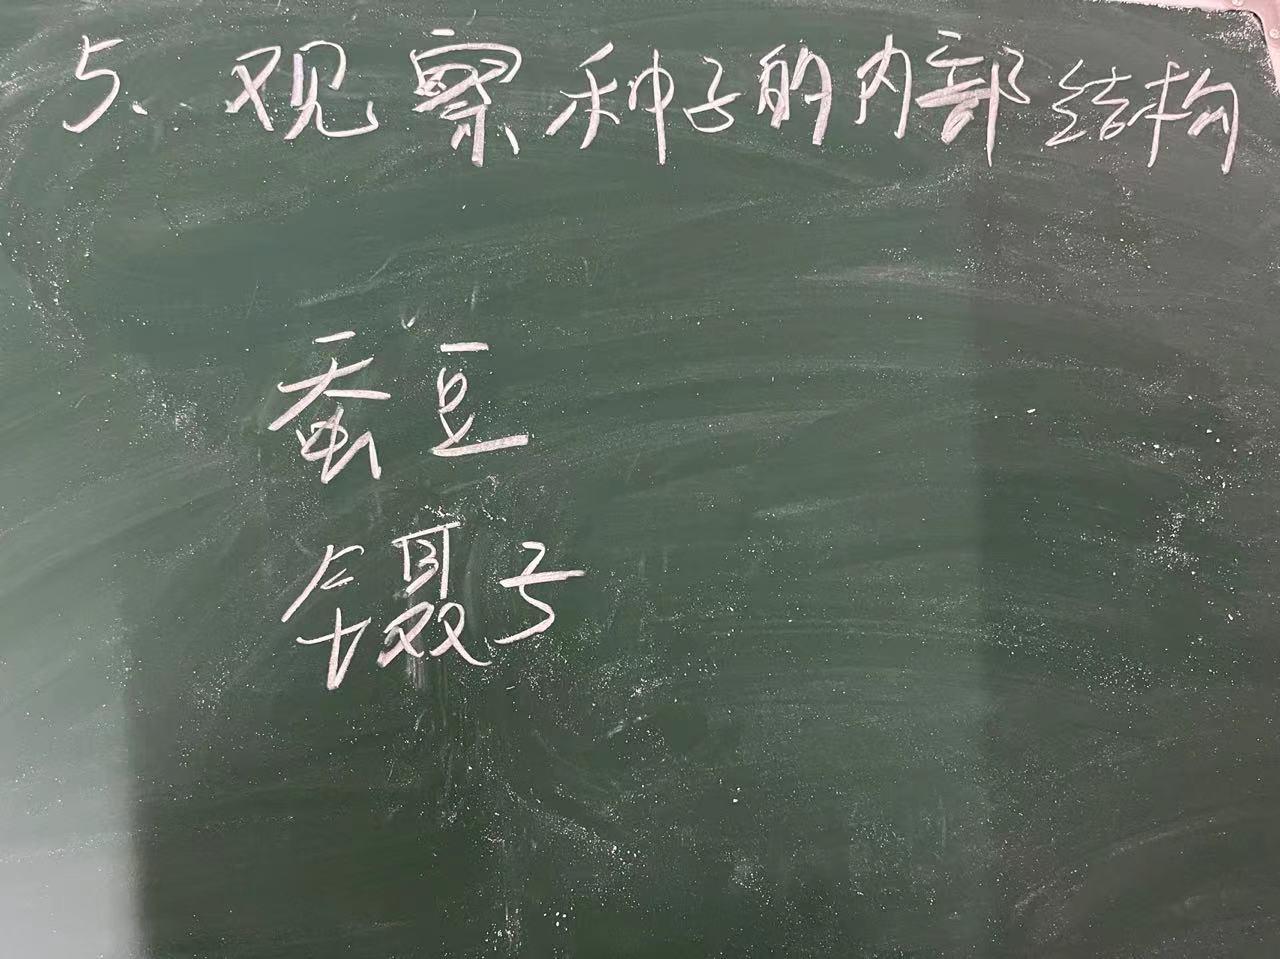 5、观察种子的内部结构
蚕豆
镊子